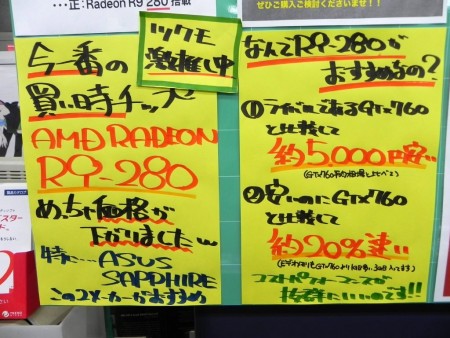 …正: Radeon R9 280 搭載
ぜひご購入ご検討くださいませ!!
ツクモ
激推し中
今一番の
買い時チップ
AMD RADEON
R9-280
めっちゃ価格が
下がりました
特に…ASUS
SAPPHIRE
この2メーカーがおすすめ
なんでR9-280が
おすすめなの?
①ライバルであるGTX760
と比較して
約5,000円安い
(GTX760平均相場と比べて)
②安いのにGTX760
と比較して
約20%速い
コストパフォーマンスが
抜群にいいのです!!